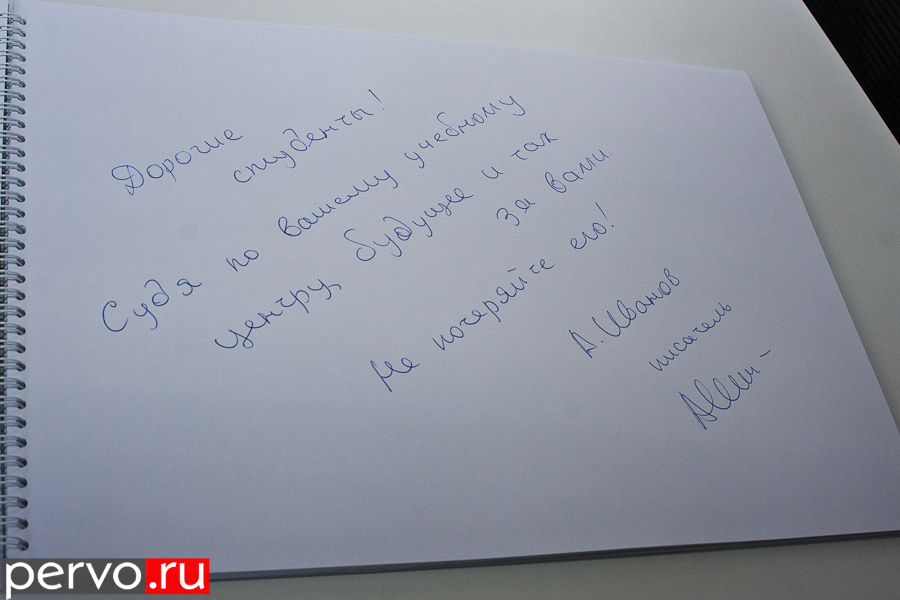 Дорогие
студенты!
Судя по вашему учебному
центру, будущее и так
за вами.
Не потеряйте его!
А. Иванов
писатель
pervo.ru